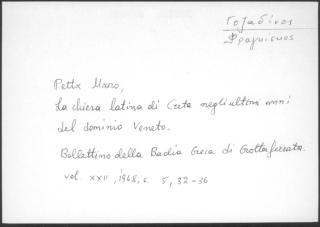 Τοζαδίνος
Φραγκισκος
Petta Marco,
La chiesa latina di Creta negli ultimi anni
del dominio Veneto.
Bollettino della Badia Greca di Grottaferrata.
vol. XXII, 1968, σ. 5, 32-36